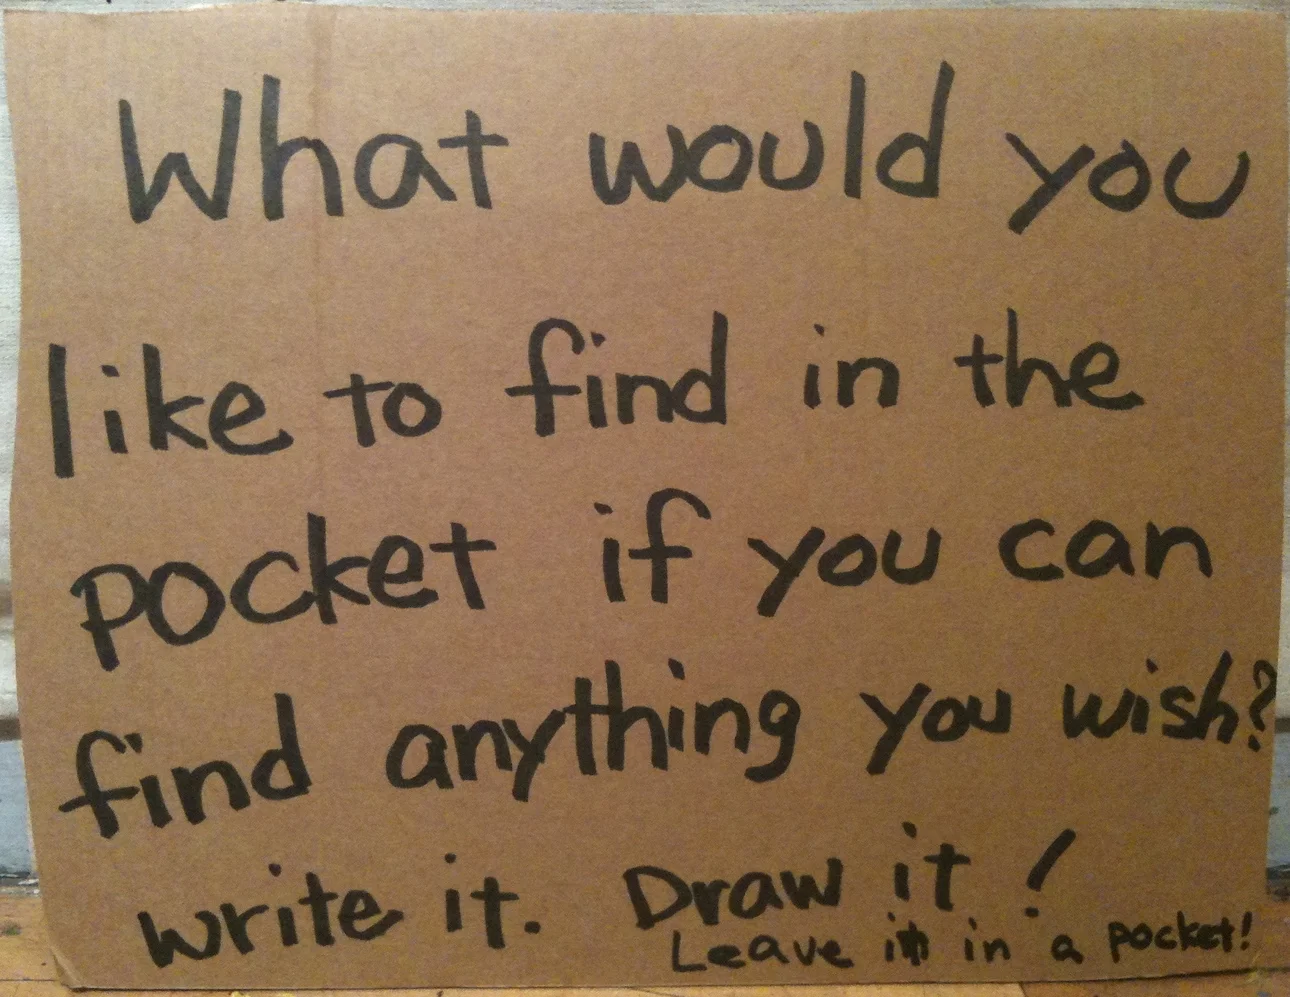 What would you
like to find in the
pocket if you can
find anything you wish?
write it. Draw it!
Leave it in a pocket!